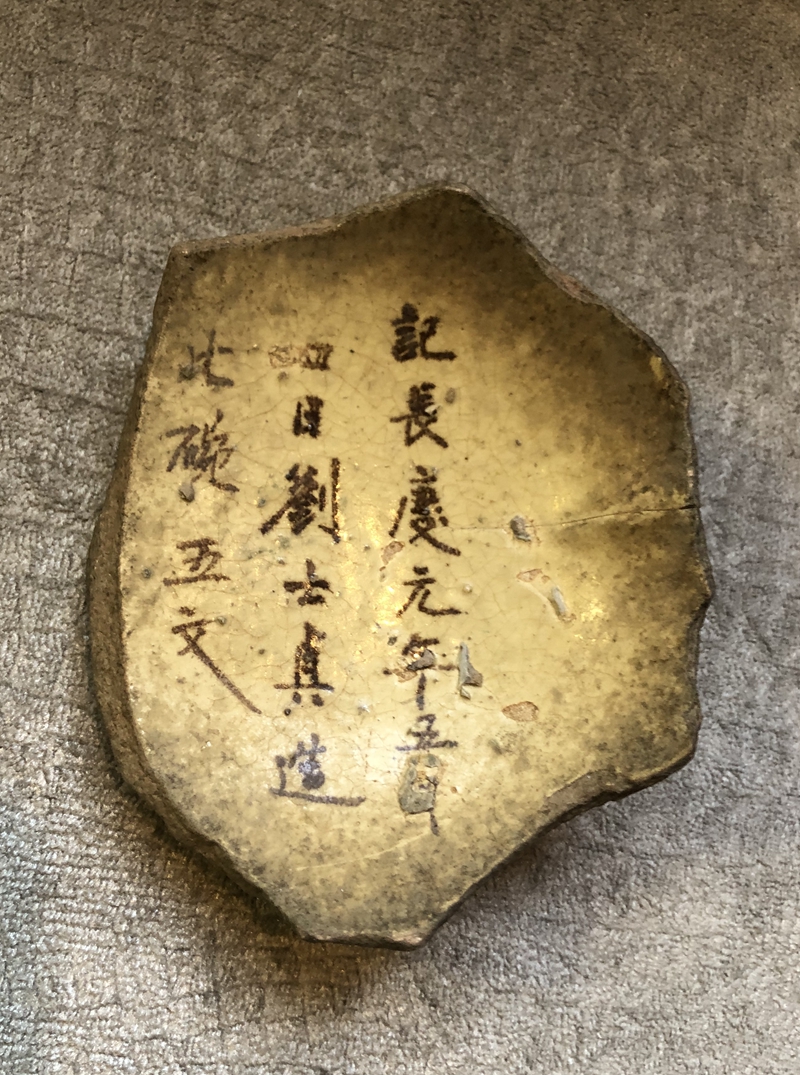 記長慶元年五月
四日劉士真造
此碗五文